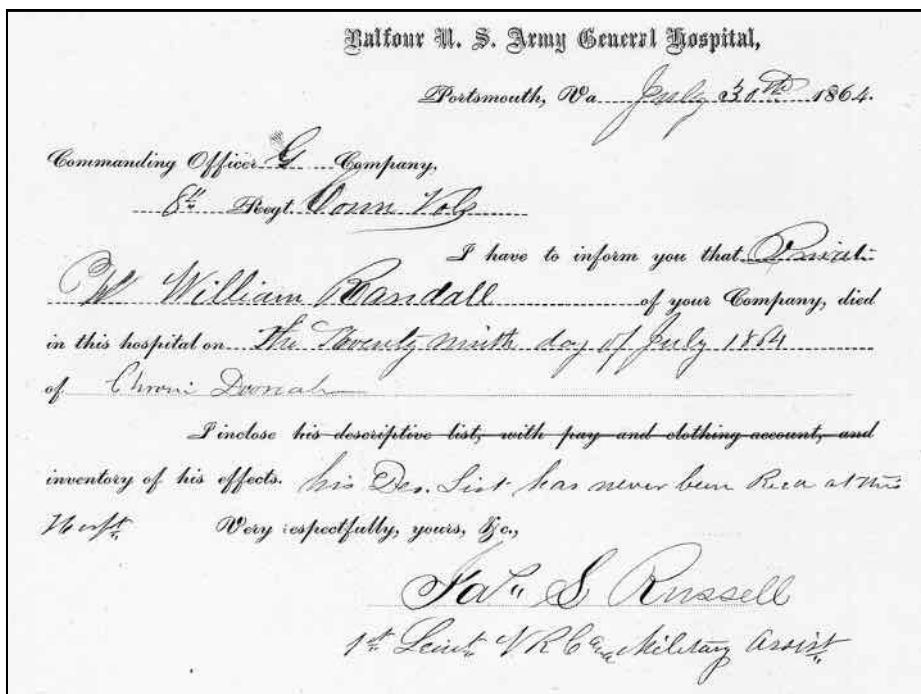 Balfour U. S. Army General Hospital,
Portsmouth, Va July 30th 1864.
Commanding Officer G Company,
8th Regt. Conn Vols
I have to inform you that Privat
W William Randall of your Company, died
in this hospital on the Twenty ninth day of July 1864
of Chroni
I inclose his descriptive list, with pay and clothing account, and
inventory of his effects. his Des. List has never been Recd at this
Hospt. Very respectfully, yours, &c.,
Jas S Russell
1st Lieut V R C and Military Assist